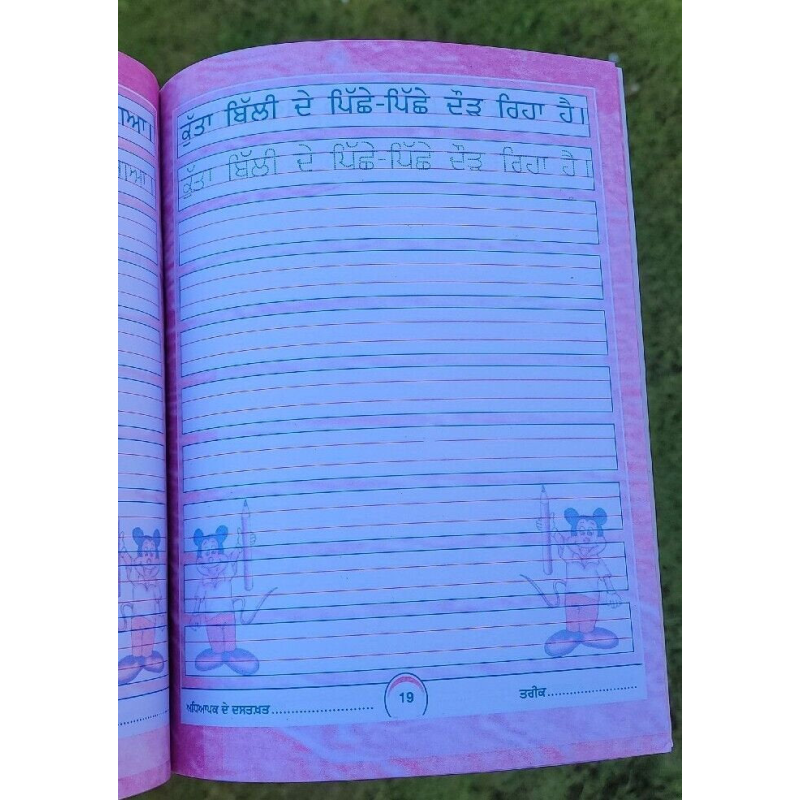 ਗਆ।
ਗਆ।
ਕੁੱਤਾ ਬਿੱਲੀ ਦੇ ਪਿੱਛੇ-ਪਿੱਛੇ ਦੌੜ ਰਿਹਾ ਹੈ।
ਕੁੱਤਾ ਬਿੱਲੀ ਦੇ ਪਿੱਛੇ-ਪਿੱਛੇ ਦੌੜ ਰਿਹਾ ਹੈ।
ਅਧਿਆਪਕ ਦੇ ਦਸਤਖ਼ਤ ........................ 19 ਤਰੀਕ ........................